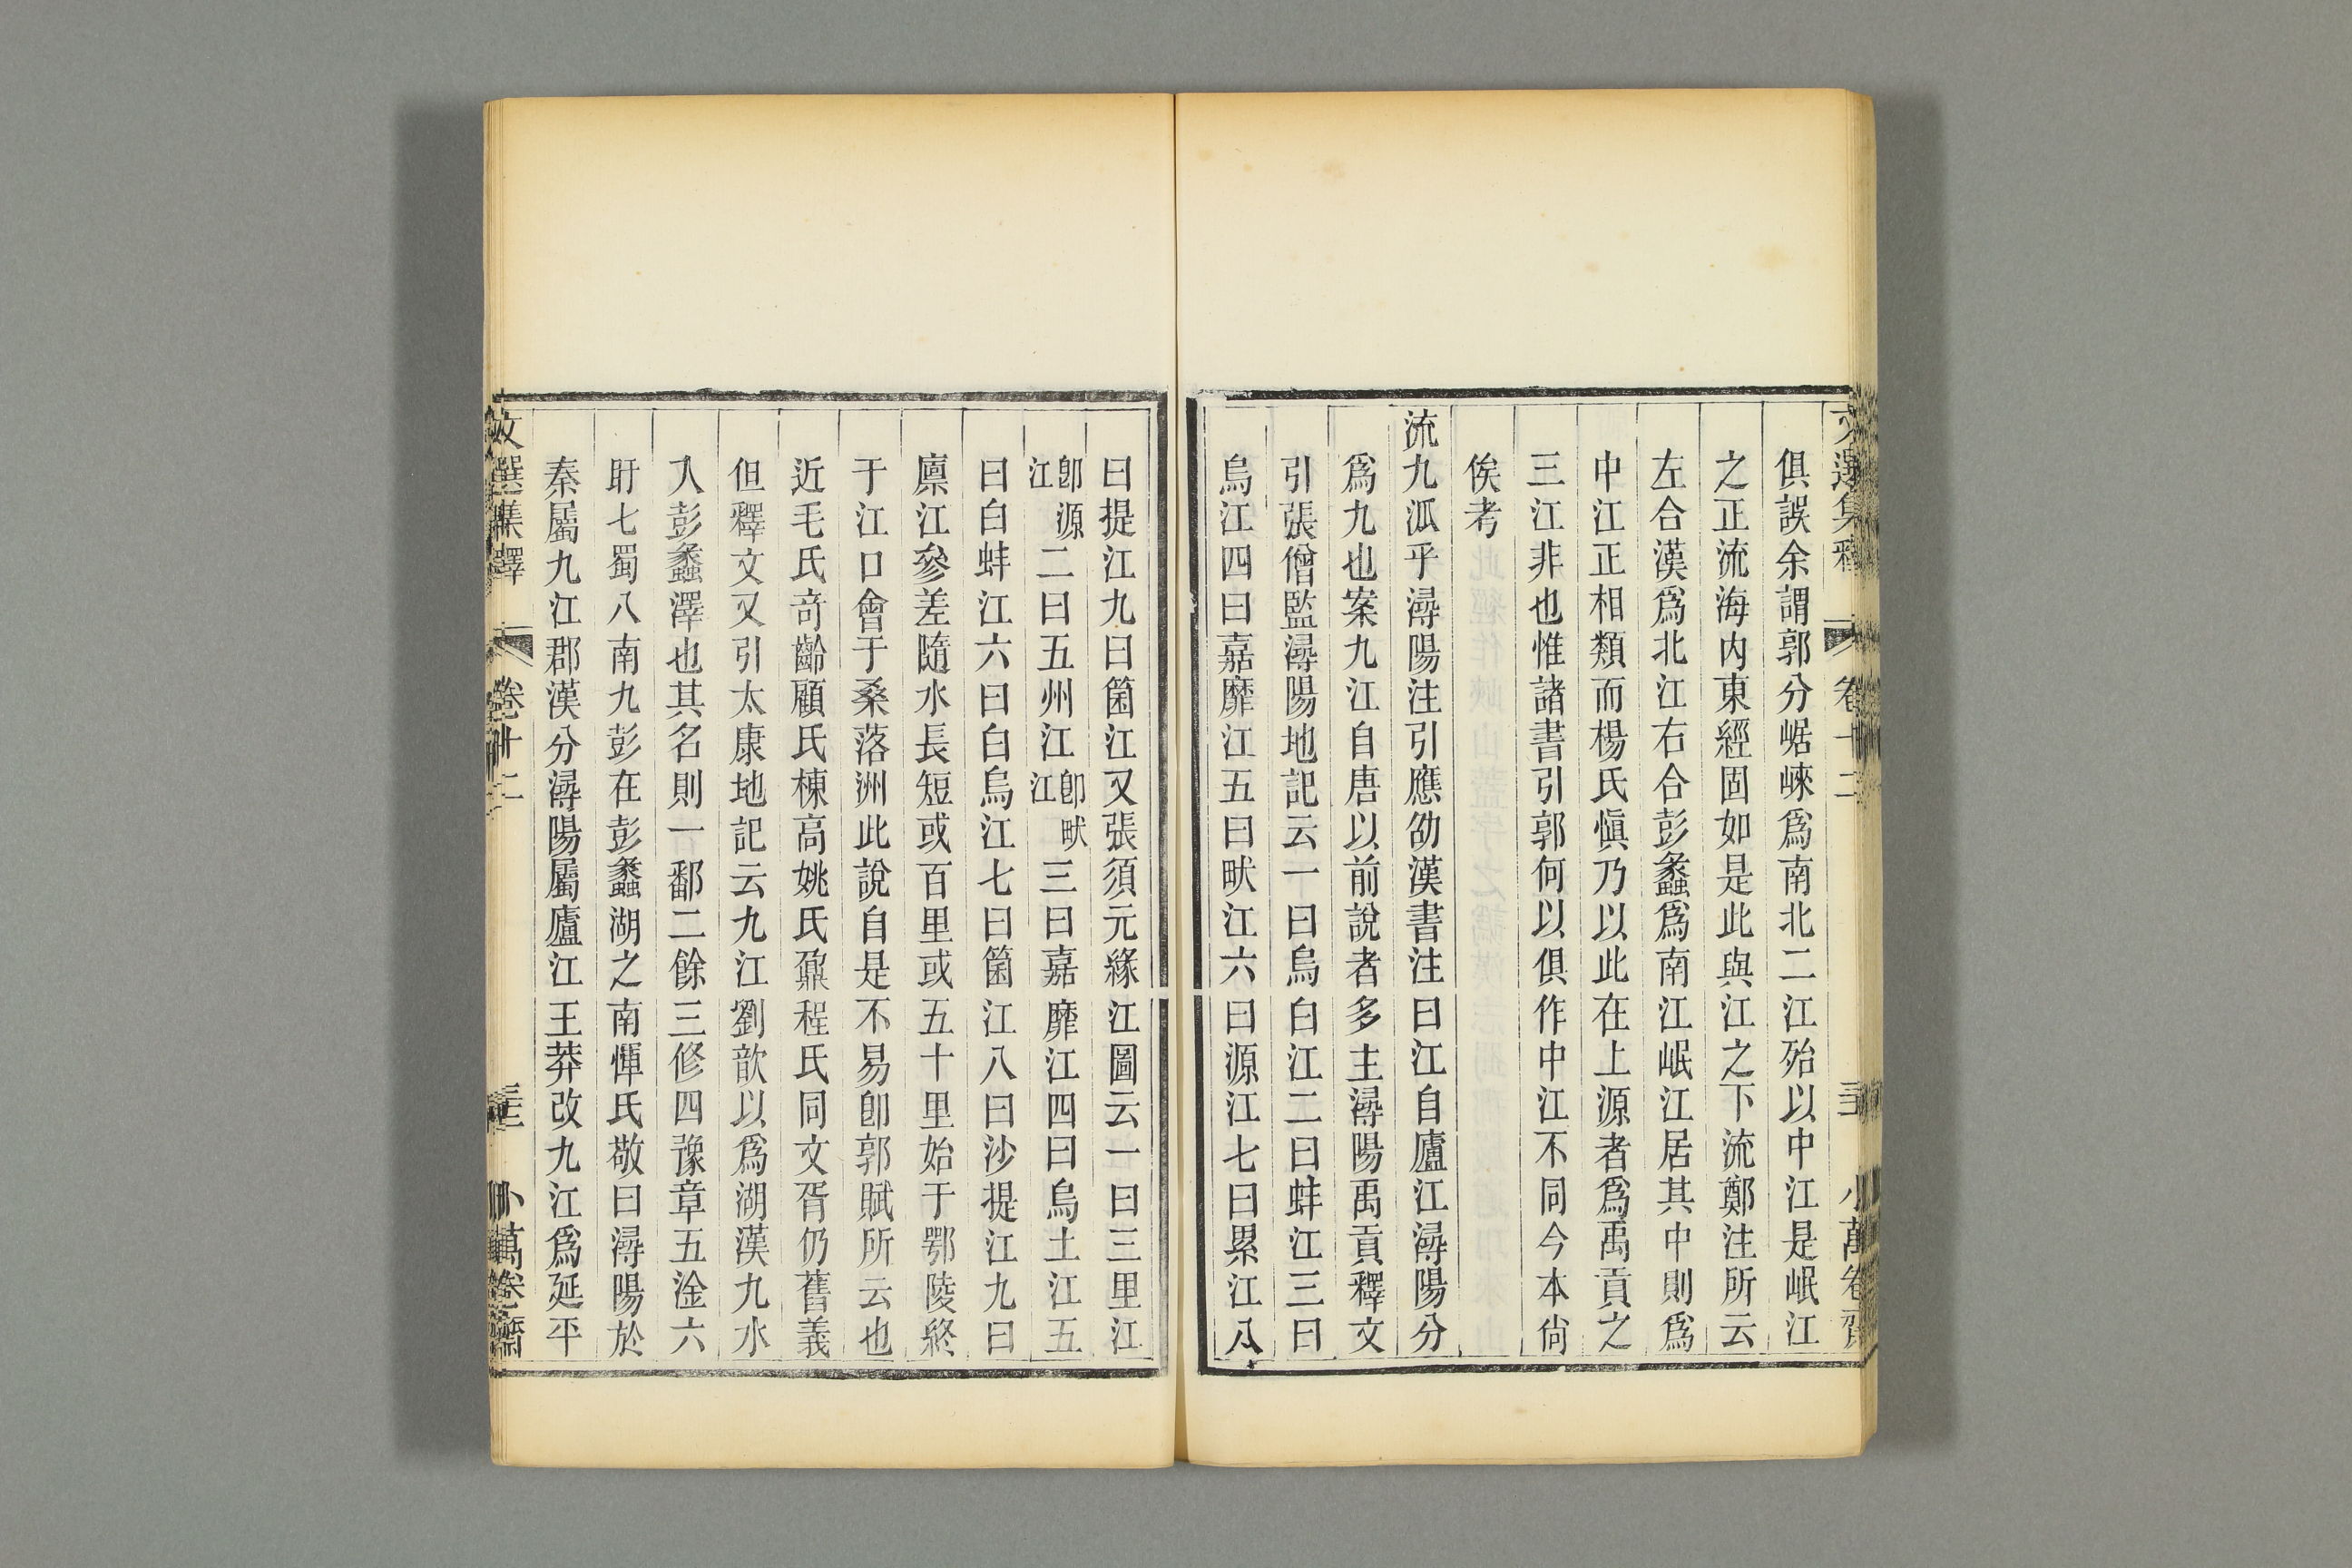 文選集釋 卷十二 小萬卷齋
俱誤余謂郭分崌崍爲南北二江殆以中江是岷江
之正流海内東經固如是此與江之下流鄭注所云
左合漢爲北江右合彭蠡爲南江岷江居其中則爲
中江正相類而楊氏愼乃以此在上源者爲禹貢之
三江非也惟諸書引郭何以俱作中江不同今本尙
俟考
流九泒乎潯陽注引應劭漢書注曰江自廬江潯陽分
爲九也案九江自唐以前說者多主潯陽禹貢釋文
引張僧監潯陽地記云一曰烏白江二曰蚌江三曰
烏江四曰嘉靡江五曰畎江六曰源江七曰累江八
曰提江九曰箘江又張須元緣江圖云一曰三里江
卽源江二曰五州江卽畎江三曰嘉靡江四曰烏土江五
曰白蚌江六曰白烏江七曰箘江八曰沙提江九曰
廩江參差隨水長短或百里或五十里始于鄂陵終
于江口會于桑落洲此說自是不易卽郭賦所云也
近毛氏奇齡顧氏棟高姚氏鼐程氏同文胥仍舊義
但釋文又引太康地記云九江劉歆以爲湖漢九水
入彭蠡澤也其名則一鄱二餘三修四豫章五淦六
盱七蜀八南九彭在彭蠡湖之南惲氏敬曰潯陽於
秦屬九江郡漢分潯陽屬廬江王莽改九江爲延平
文選集釋 卷十二 小萬卷齋